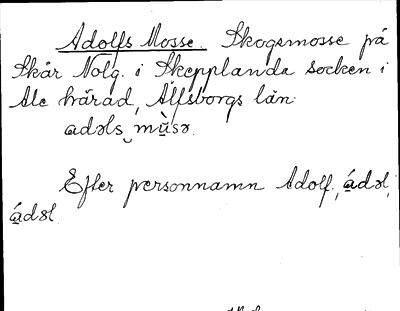 Adolfs Mosse. Skogsmosse på
Skår Nolg. i Skepplanda socken i
Ale härad, Älfsborgs län.
adəls mùsə.
Efter personnamn Adolf, ádəl,
ádəl